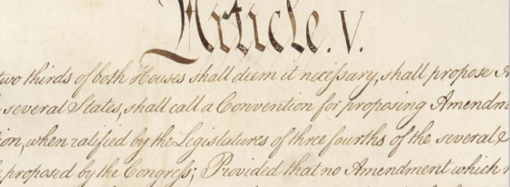 Article. V.
two thirds of both Houses shall deem it necessary, shall propose
several States, shall call a Convention for proposing
ion, when ratified by the Legislatures of three fourths of the several
proposed by the Congress; Provided that no Amendment which